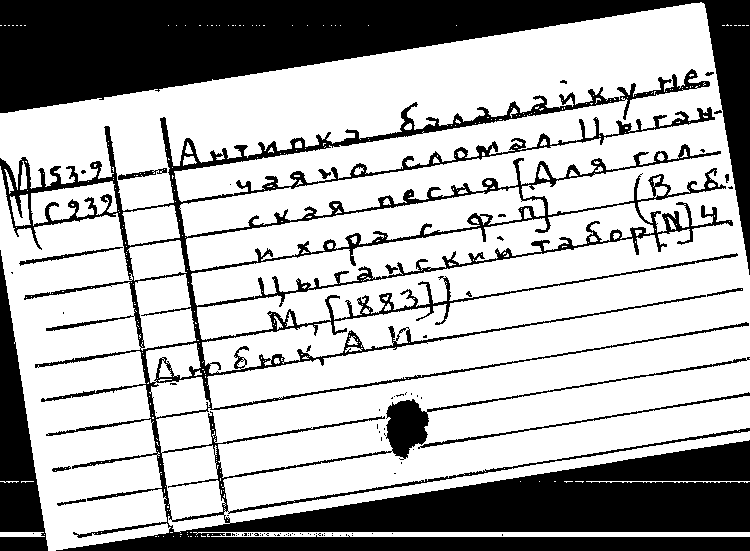 Антипка балалайку не-
М 153.9
чаянно сломал. Цыган-
С 939
ская песня [Для гол.
и хора с ф-п]. (В сб.:
Цыганский табор [N] 4
М, [1883]).
Дюбюк, А. И.